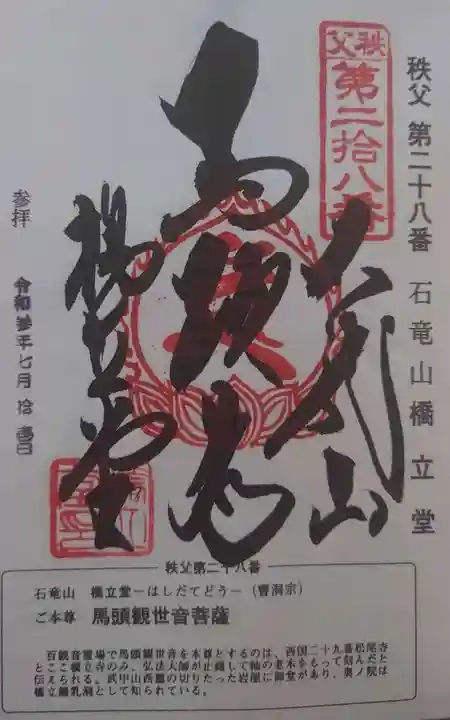 秩父 第二十八番 石竜山橋立堂
秩父
第二拾八番
石龍山
馬頭尊
橋立堂
参拝 令和参年七月拾壹日
秩父第二十八番
石竜山 橋立堂ーはしだてどうー(曹洞宗)
ご本尊 馬頭観世音菩薩
百観音霊場で馬頭観世音を本尊とするのは、西国二十九番松尾寺
とここ橋立寺のみ、弘法大師が止錫して柚の老木をもって刻んだと
伝えられる。武甲山西麓の切りたった岩屋に御堂があり、奥ノ院は
橋立鍾乳洞として知られている。